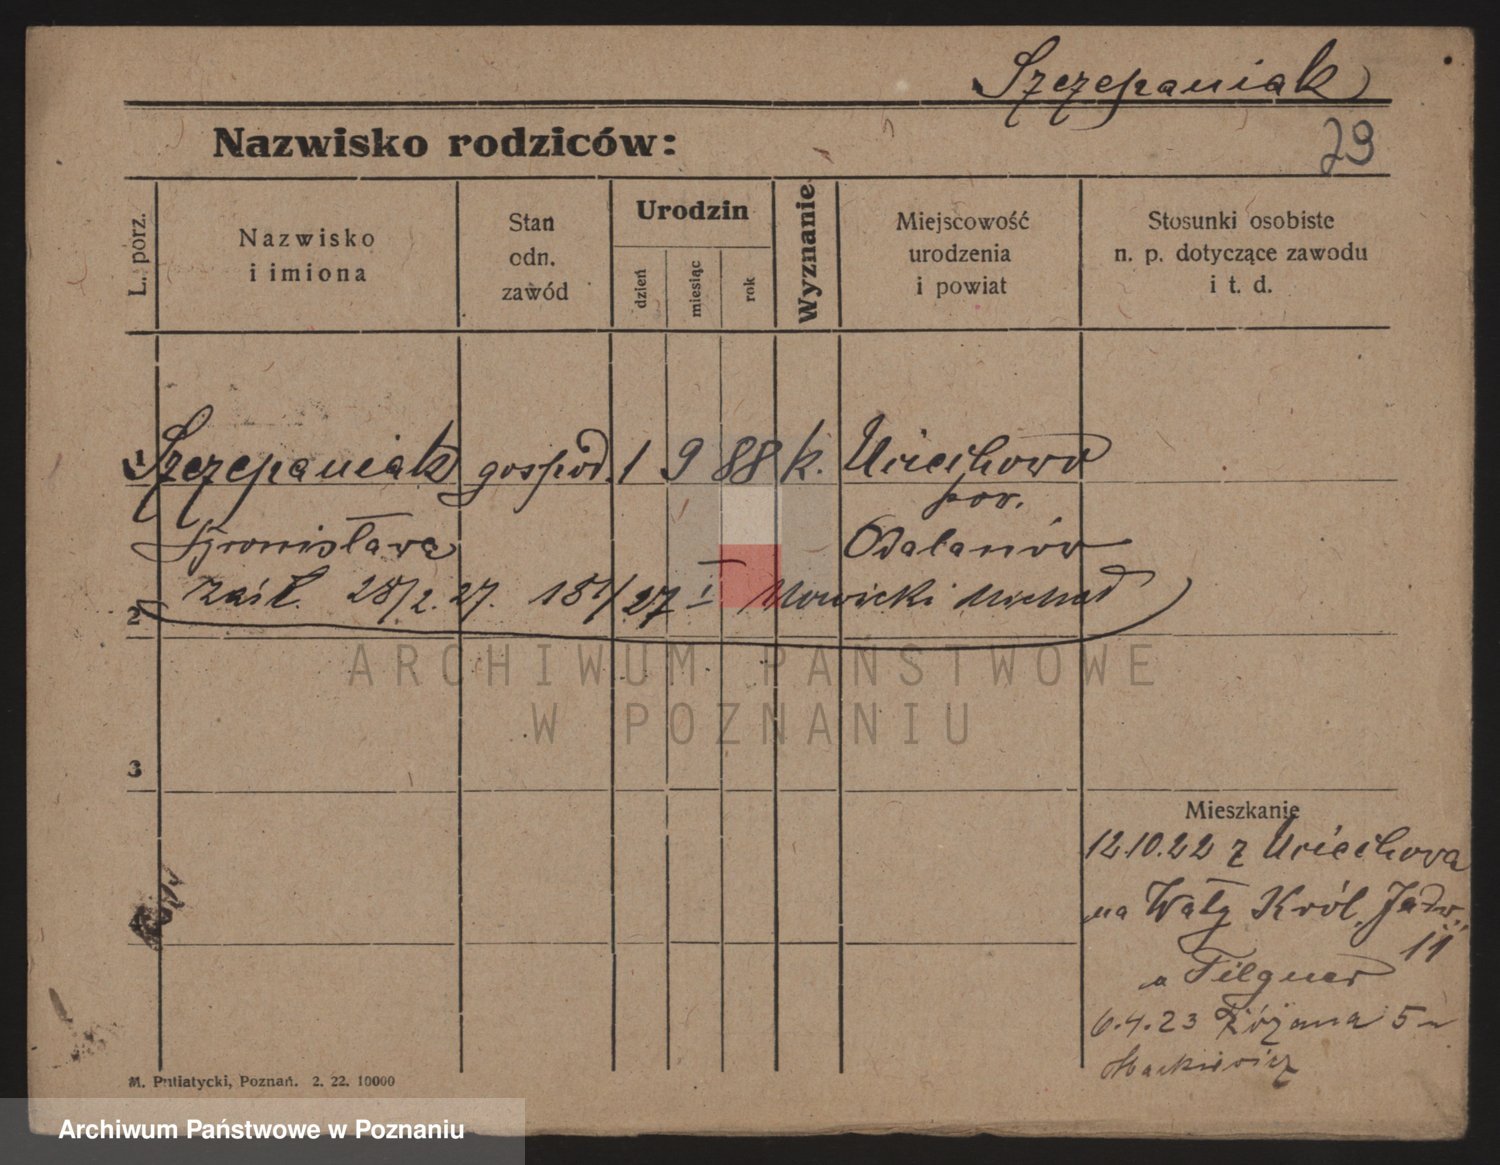 Szczepaniak
Nazwisko rodziców:
29
L. porz.
Nazwisko
i imiona
Stan
odn.
zawód
Urodzin
dzień
miesiąc
rok
Wyznanie
Miejscowość
urodzenia
i powiat
Stosunki osobiste
n. p. dotyczące zawodu
i t. d.
1 Szczepaniak gospod. 1 9 88 k. Uciechowo
pow.
Bronisława Odalanów
2 zaśl. 28/2. 27. 181/27 I Nowicki Michał
ARCHIWUM PAŃSTWOWE
W POZNANIU
3
Mieszkanie
12.10.22 z Uciechowa
na Wały Król. Jadw.
11
u Tilgner
6.4.23 Różana 5 u
Mackiewicz
M. Putiatycki, Poznań. 2. 22. 10000
Archiwum Państwowe w Poznaniu